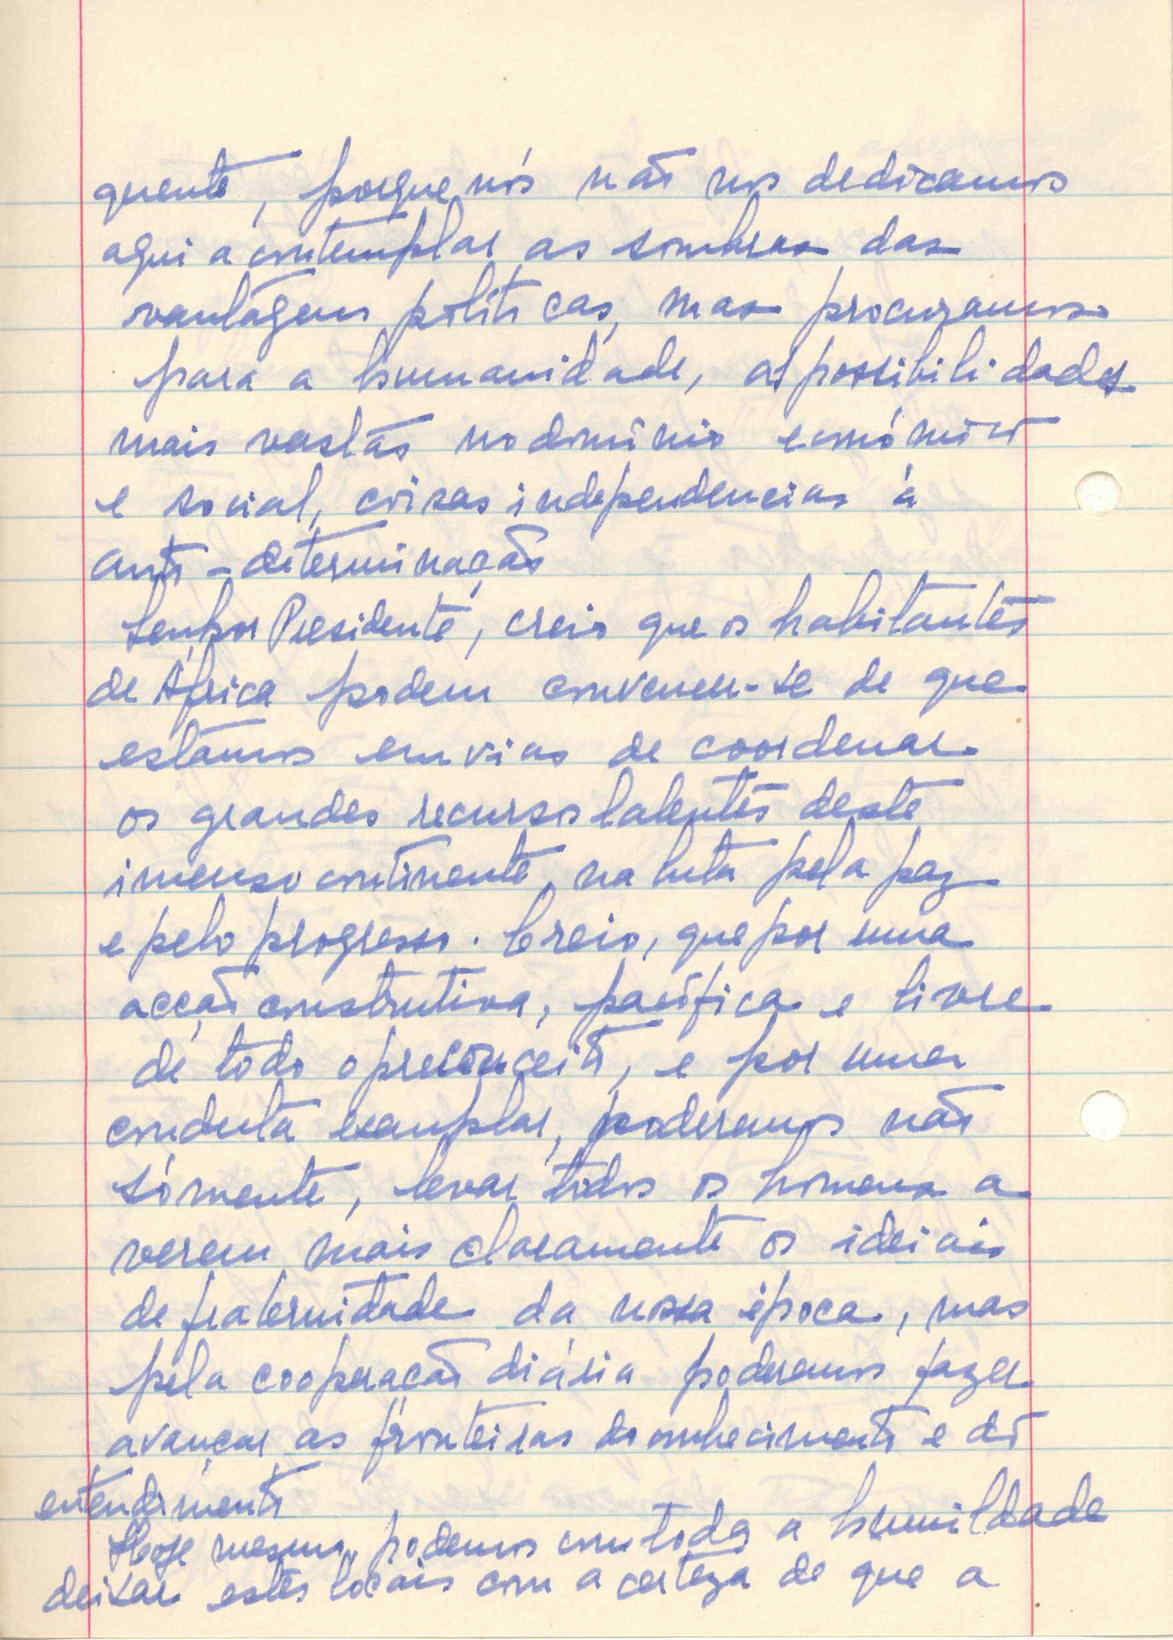 quente, porque nós não nos dedicamos
aqui a contemplar as sombras das
vantagens politicas, mas procuramos
para a humanidade, as possibilidades
mais vastas no dominio económico
e social, coisas independencias á
anti-determinação
Senhor Presidente, creio que os habitantes
de África podem convencer-se de que
estamos em vias de coordenar
os grandes recursos latentes deste
imenso continente, na luta pela paz
e pelo progresso. Creio, que por uma
acção construtiva, pacífica e livre
de todo o preconceito, e por uma
conduta exemplar, poderemos não
sómente, levar todos os homens a
verem mais claramente os ideiais
de fraternidade da nossa época, mas
pela cooperação diária poderemos fazer
avançar as fronteiras do conhecimento e do
entendimento
Hoje mesmo, podemos com toda a humildade
deixar estes locais com a certeza de que a